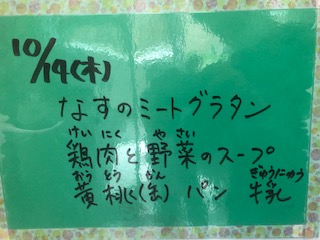 10/19(木)
なすのミートグラタン
けいにく やさい
鶏肉と野菜のスープ
おうとう かん ぎゅうにゅう
黄桃(缶) パン 牛乳